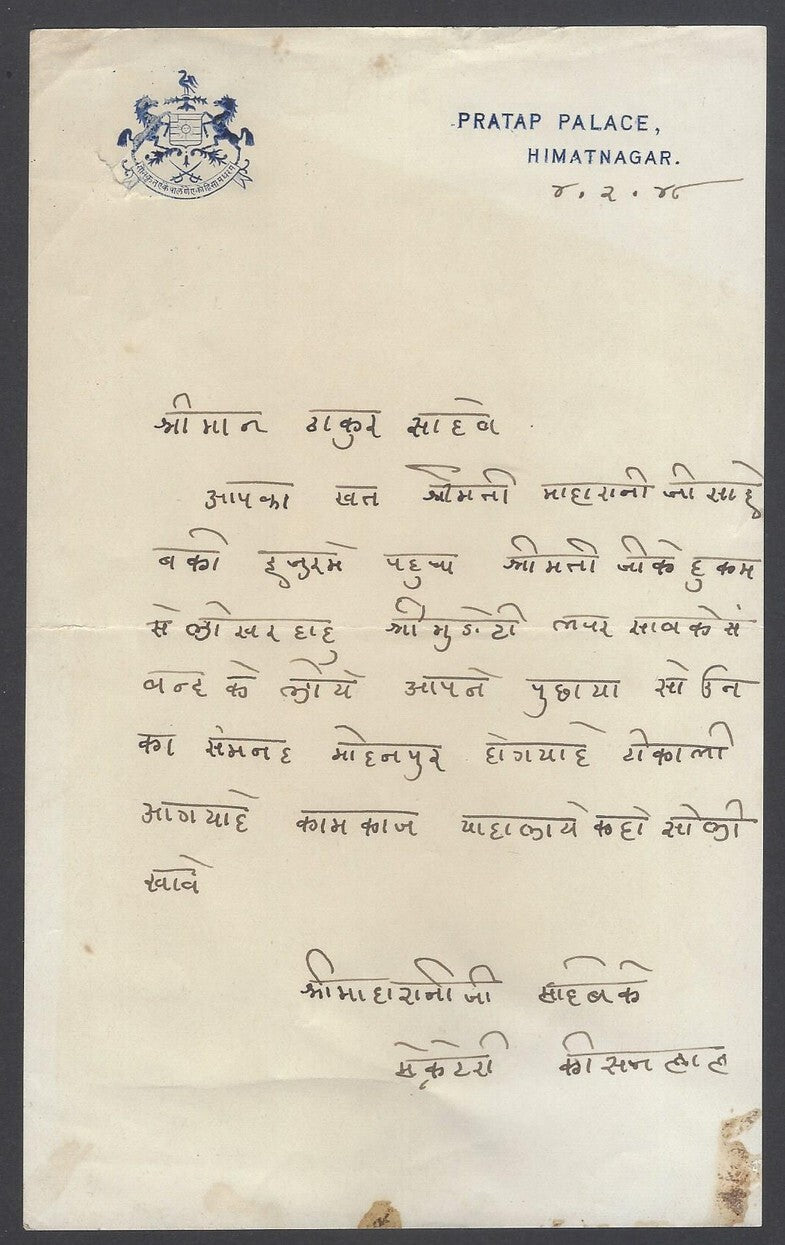 PRATAP PALACE,
HIMATNAGAR.
४.२.४८
श्रीमान ठाकुर साहेब
आपका खत श्रीमती माहारानी जी साहे
बकी हजुरमे पहुचा श्रीमती जीके हुकम
से लीखर हाहु श्री मुडेटी
के लीये आपने पुछाया सो उन
का संमनद मोहनपुर होगयाहे टीका भी
आगयाहे कामकाज याहालायेक हो सो ली
खावे
श्रीमाहारानीजी साहेबके
सेक्रेटेरी कीसनलाल